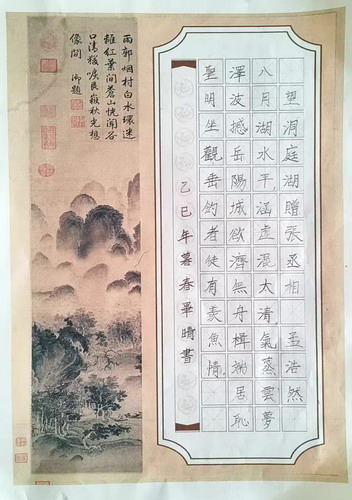 望洞庭湖贈張丞相 孟浩然
八月湖水平,涵虛混大清氣蒸雲夢
澤波撼岳陽城欲濟無舟楫端居恥
聖明坐觀垂釣者徒有羨魚情
乙巳年暮春畢晴書
雨郭烟村白水環迷
離紅葉間蒼山恍聞谷
口清猿唳艮嶽秋光想
像間 御題